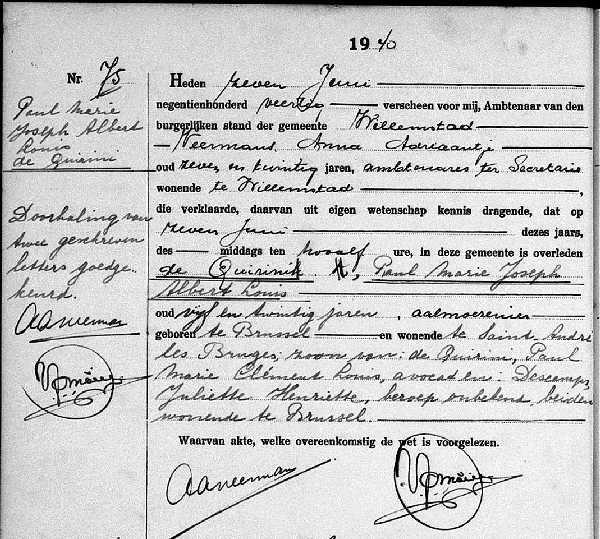 1940
Nr. 75
Paul Marie
Joseph Albert
Louis
de Quirini
Doorhaling van
twee geschreven
letters goedge-
keurd.
AAWeerman
Heden zeven Juni
negentienhonderd veertig verscheen voor mij, Ambtenaar van den
burgerlijken stand der gemeente Willemstad
Weermans, Anna Adriaantje
oud zeven en twintig jaren, ambtenares ter Secretarie
wonende te Willemstad,
die verklaarde, daarvan uit eigen wetenschap kennis dragende, dat op
zeven Juni dezes jaars,
des middags ten twaalf ure, in deze gemeente is overleden
de Quirini, Paul Marie Joseph
Albert Louis
oud vijf en twintig jaren, aalmoezenier
geboren te Brussel en wonende te Saint André
les Bruges, zoon van: de Quirini, Paul
Marie Clément Louis, avocat en: Descamps,
Juliette Henriette, beroep onbekend, beiden
wonende te Brussel.
Waarvan akte, welke overeenkomstig de wet is voorgelezen.
AAWeerman